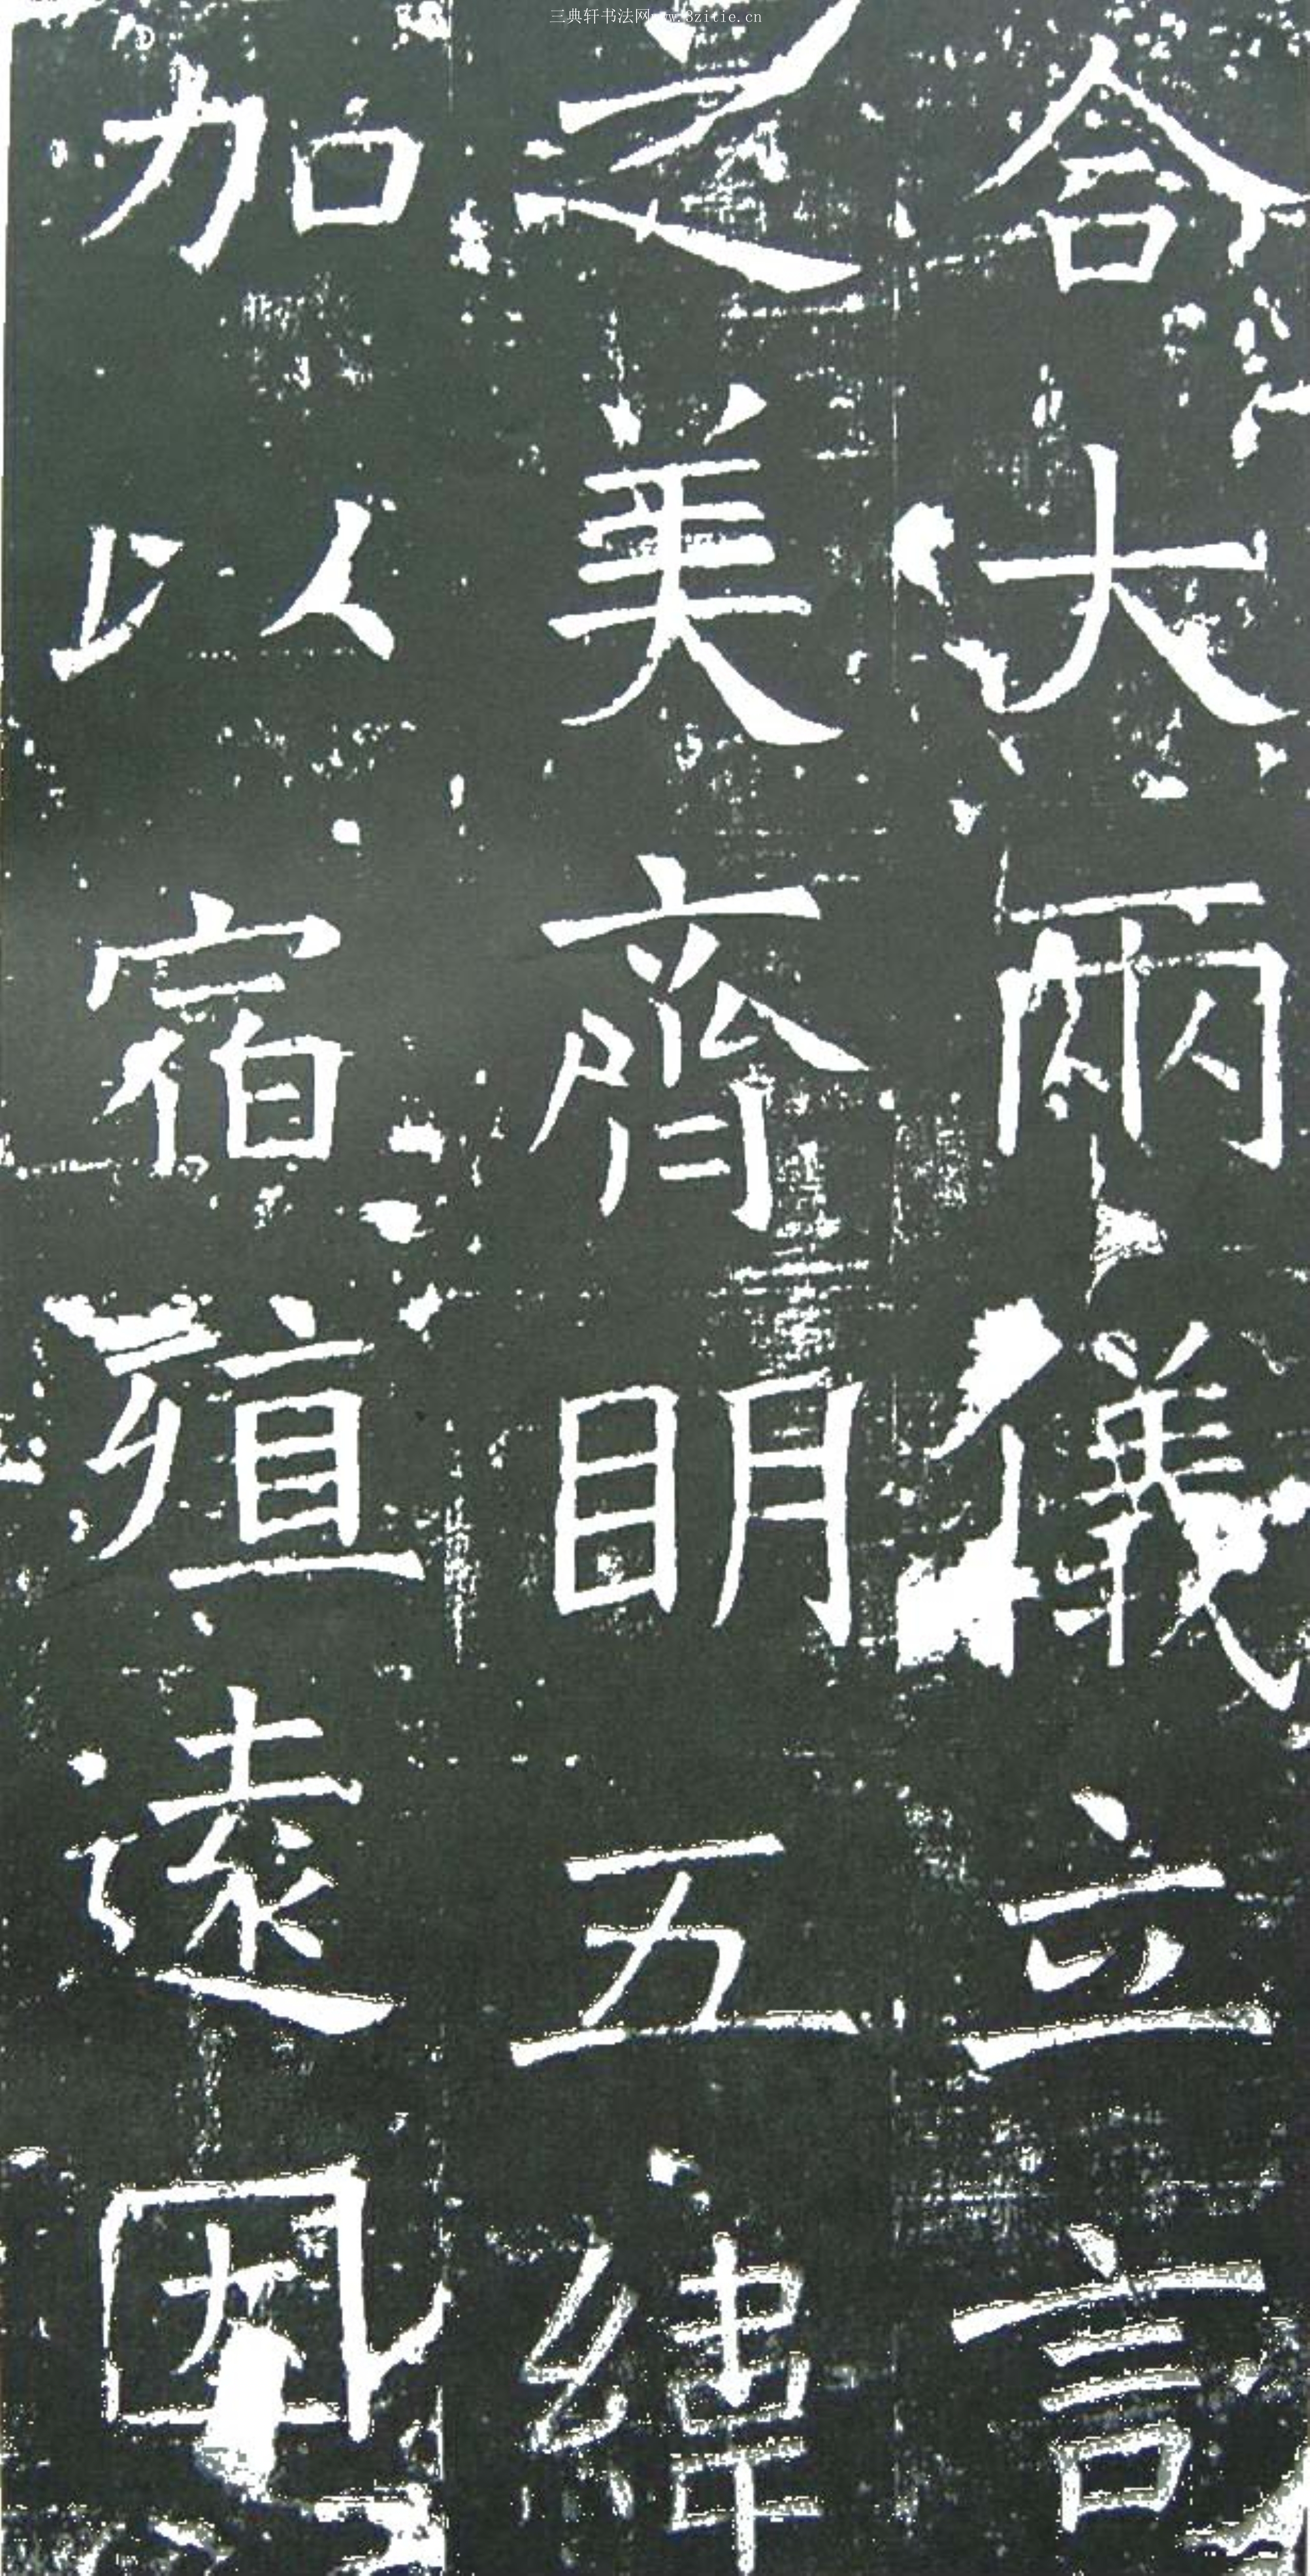 三典轩书法网www.8zitie.cn
合大兩儀立言
之美齊明五緯
加以宿殖遠因